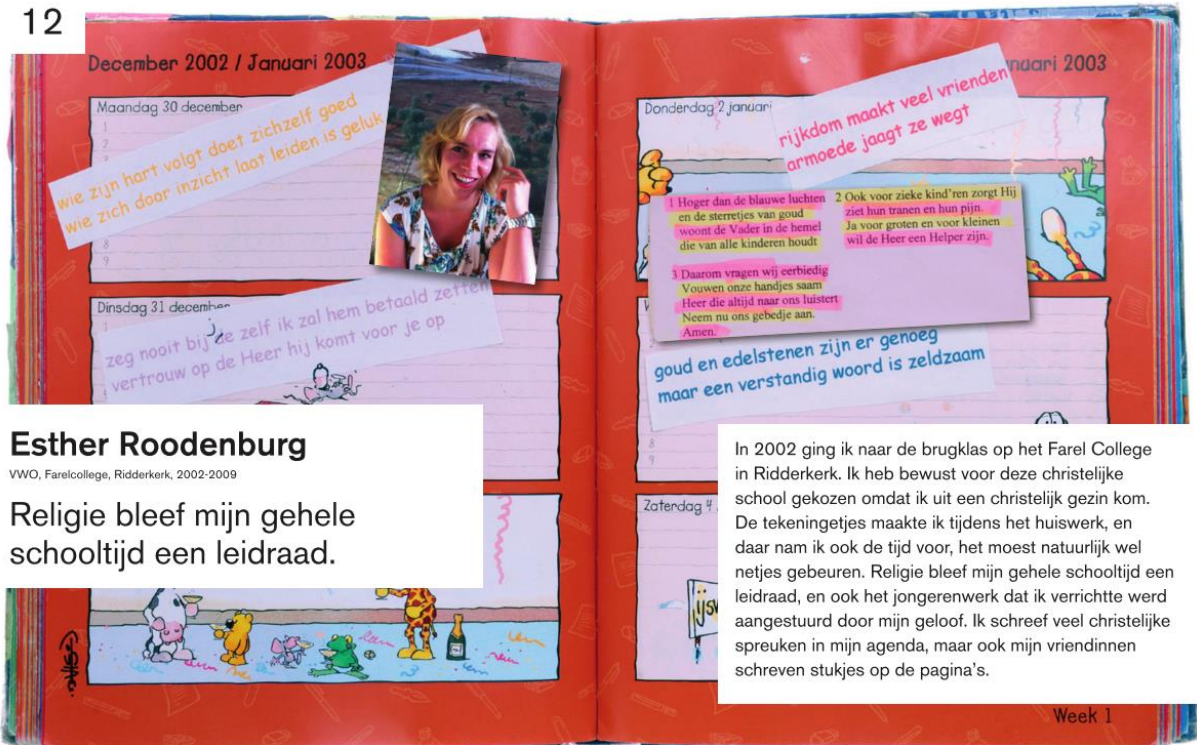 12
December 2002 / Januari 2003
Maandag 30 december
1
2
8
9
wie zijn hart volgt doet zichzelf goed
wie zich door inzicht laat leiden is geluk
Dinsdag 31 december
1
zeg nooit bij je zelf ik zal hem betaald zetten
vertrouw op de Heer hij komt voor je op
Esther Roodenburg
VWO, Farelcollege, Ridderkerk, 2002-2009
Religie bleef mijn gehele
schooltijd een leidraad.
nuari 2003
Donderdag 2 januari
rijkdom maakt veel vrienden
armoede jaagt ze wegt
1 Hoger dan de blauwe luchten
en de sterretjes van goud
woont de Vader in de hemel
die van alle kinderen houdt
2 Ook voor zieke kind'ren zorgt Hij
ziet hun tranen en hun pijn.
Ja voor groten en voor kleinen
wil de Heer een Helper zijn.
3 Daarom vragen wij eerbiedig
Vouwen onze handjes saam
Heer die altijd naar ons luistert
Neem nu ons gebedje aan.
Amen.
goud en edelstenen zijn er genoeg
maar een verstandig woord is zeldzaam
8
9
Zaterdag 4
ijsv
In 2002 ging ik naar de brugklas op het Farel College
in Ridderkerk. Ik heb bewust voor deze christelijke
school gekozen omdat ik uit een christelijk gezin kom.
De tekeningetjes maakte ik tijdens het huiswerk, en
daar nam ik ook de tijd voor, het moest natuurlijk wel
netjes gebeuren. Religie bleef mijn gehele schooltijd een
leidraad, en ook het jongerenwerk dat ik verrichtte werd
aangestuurd door mijn geloof. Ik schreef veel christelijke
spreuken in mijn agenda, maar ook mijn vriendinnen
schreven stukjes op de pagina's.
Week 1